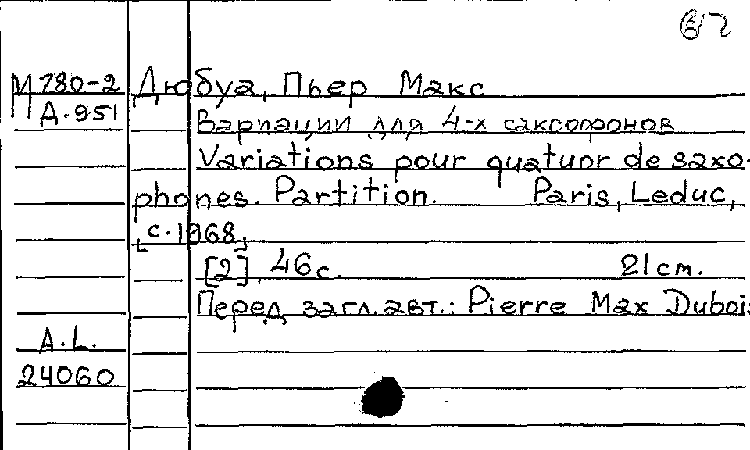 М780-2 Дюбуа, Пьер Макс
Д.951
Вариации для 4-х саксофонов
Variations pour quatuor de saxo-
phones. Partition. Paris, Leduc,
[с.1968]
[2] 46с. 21см.
Перед загл. авт.: Pierre Max Dubois
A.L.
24060